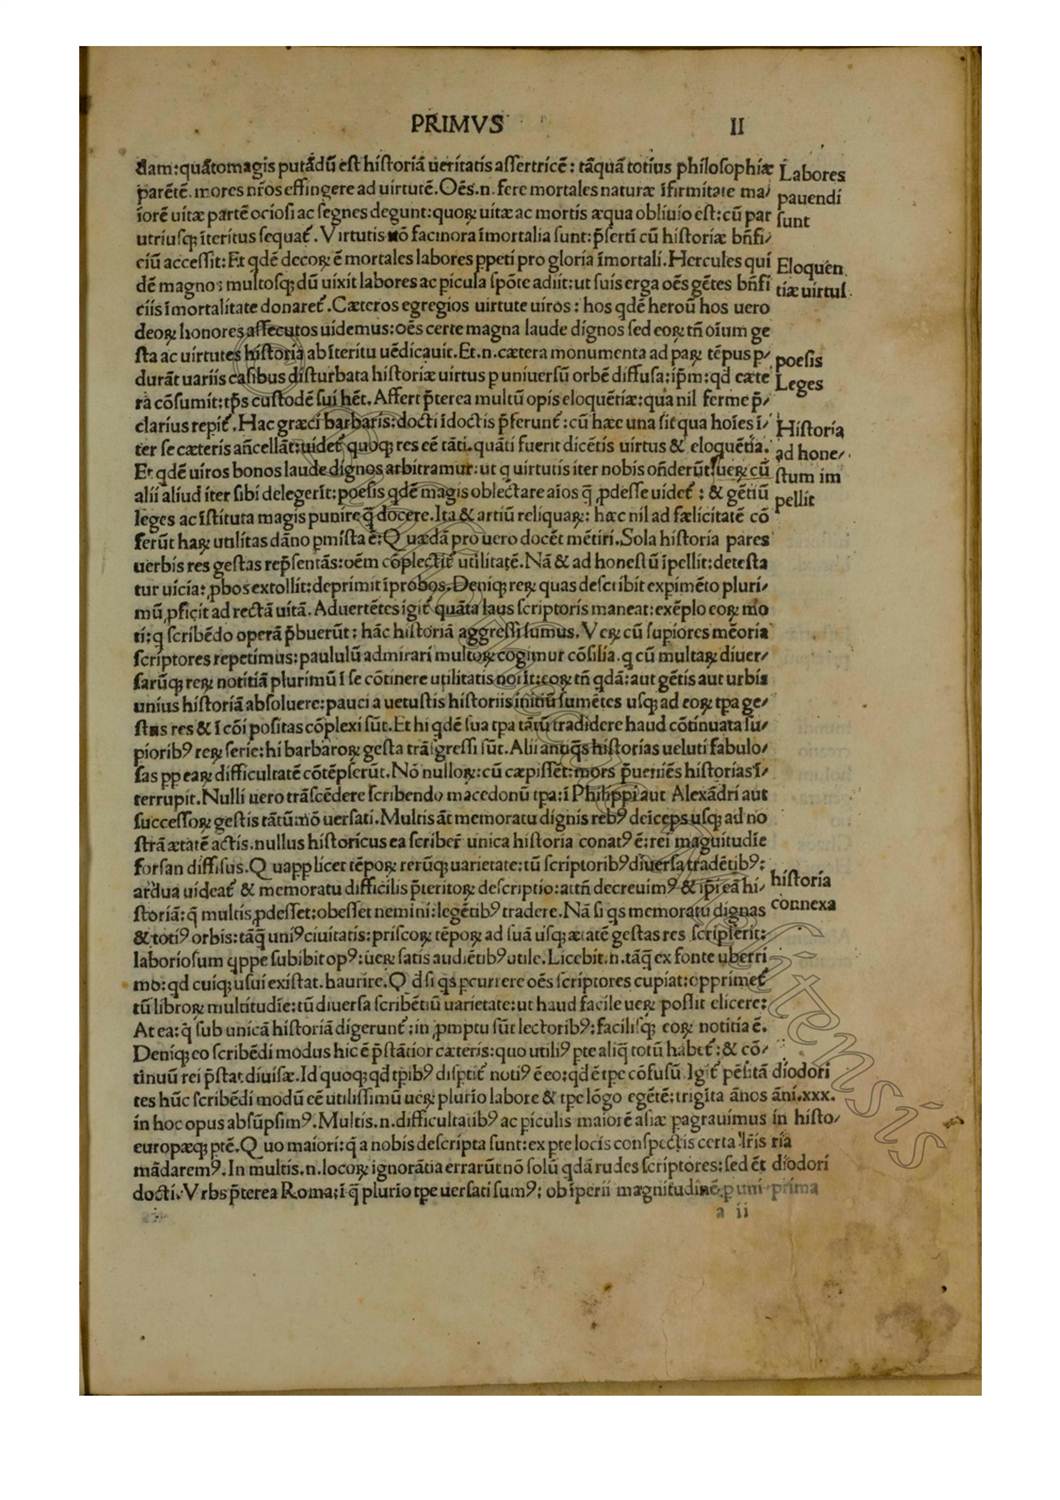 PRIMVS II
dam:quãtomagis putãdũ est historiã ueritatis assertricẽ: tãquã totius philosophiæ
parẽtẽ. mores nr̃os effingere ad uirtutẽ. Oẽs.n. fere mortales naturæ ĩfirmitate ma/
iorẽ uitæ partẽ ociosi ac segnes degunt:quoꝝ uitæ ac mortis æqua obliuio est:cũ par
utriusqꝫ ĩteritus sequat᷑. Virtutis nõ facinora ĩmortalia sunt:p̃serti cũ historiæ bñfi/
ciũ accessit: Et qdẽ decoꝝ ẽ mortales labores ꝑpeti pro gloria ĩmortali. Hercules qui
dẽ magnos multosqꝫ dũ uixit labores ac picula spõte adiit:ut suis erga oẽs gẽtes bñfi
ciis ĩmortalitate donaret᷑. Cæteros egregios uirtute uiros: hos qdẽ heroũ hos uero
deoꝝ honores assecutos uidemus:oẽs certe magna laude dignos sed eoꝝ tñ oĩum ge
sta ac uirtutes historia ab ĩteritu uẽdicauit. Et.n. cætera monumenta ad paꝝ tẽpus p/
durãt uariis casibus disturbata historiæ uirtus p uniuersũ orbẽ diffusa: ip̃m: qd cæte
ra cõsumit: tp̃s custodẽ sui hẽt. Affert p̃terea multũ opis eloquẽtiæ: qua nil ferme p̃/
clarius repit᷑. Hac græci barbaris: docti ĩdoctis p̃ferunt᷑: cũ hæc una sit qua hoĩes ĩ/
ter se cæteris añcellãt: uidet᷑ quoqꝫ res eẽ tãti. quãti fuerit dicẽtis uirtus & eloquẽtia.
Et qdẽ uiros bonos laude dignos arbitramur: ut q uirtutis iter nobis oñderũt: ueꝝ cũ
alii aliud iter sibi delegerĩt: poesis qdẽ magis oblectare aĩos q̃ ꝓdesse uidet᷑ : & gẽtiũ
leges ac ĩstituta magis punire q̃ docere. Ita & artiũ reliquaꝝ: hæc nil ad fælicitatẽ cõ
ferũt haꝝ utilitas dãno pmista ẽ: Quædã pro uero docẽt mẽtiri. Sola historia pares
uerbis res gestas rep̃sentãs: oẽm cõplectit᷑ utilitatẽ. Nã & ad honestũ ĩpellit: detesta
tur uicia: ꝓbos extollit: deprimit ĩprobos. Deniqꝫ reꝝ quas describit expimẽto pluri/
mũ ꝓficit ad rectã uitã. Aduertẽtes igit᷑ quãta laus scriptoris maneat: exẽplo eoꝝ mo
ti: q scribẽdo operã p̃buerũt: hãc historiã aggressi sumus. Veꝝ cũ supiores mẽoria
scriptores repetimus: paululũ admirari multoꝝ cogimur cõsilia. q cũ multaꝝ diuer/
sarũqꝫ reꝝ notitiã plurimũ ĩ se cõtinere utilitatis norĩt: eoꝝ tñ qdã: aut gẽtis aut urbis
unius historiã absoluere: pauci a uetustis historiis initiũ sumẽtes usqꝫ ad eoꝝ tpa ge/
stas res & ĩ cõi positas cõplexi sũt. Et hi qdẽ sua tpa tãtũ tradidere haud cõtinuata su/
pioribꝰ reꝝ serie: hi barbaroꝝ gesta trãsgressi sũt. Alii antiq̃s historias ueluti fabulo/
sas ꝓp eaꝝ difficultatẽ cõtẽpserũt. Nõ nulloꝝ: cũ cæpissẽt: mors p̃ueniẽs historias ĩ/
terrupit. Nulli uero trãscẽdere scribendo macedonũ tpa: ĩ Philippi aut Alexãdri aut
successoꝝ gestis tãtũmõ uersati. Multis ãt memoratu dignis rebꝰ deĩceps usqꝫ ad no
strã ætatẽ actis. nullus historicus ea scriber̃ unica historia conatꝰ ẽ: rei magnitudĩe
forsan diffisus. Quapp licet tẽpoꝝ rerũqꝫ uarietate: tũ scriptoribꝰ diuersa tradẽtibꝰ:
ardua uideat᷑ & memoratu difficilis p̃teritoꝝ descriptio: attñ decreuimꝰ & ip̃i eã hi/
storiã: q̃ multis ꝓdesset: obesset nemini: legẽtibꝰ tradere. Nã si qs memoratu dignas
& totiꝰ orbis: tãq̃ uniꝰ ciuitatis: priscoꝝ tẽpoꝝ ad suã usqꝫ ætatẽ gestas res scripserit:
laboriosum qppe subibit opꝰ: ueꝝ satis audiẽtibꝰ utile. Licebit.n. tãq̃ ex fonte uberri
mo: qd cuiqꝫ usui existat. haurire. Qd si qs pcurrere oẽs scriptores cupiat: opprimet᷑
tũ libroꝝ multitudĩe: tũ diuersa scribẽtiũ uarietate: ut haud facile ueꝝ possit elicere:
At ea: q̃ sub unicã historiã digerunt᷑: in ꝓmptu sũt lectoribꝰ: facilisqꝫ eoꝝ notitia ẽ.
Deniqꝫ eo scribẽdi modus hic ẽ p̃stãtior cæteris: quo utiliꝰ pte aliq̃ totũ habet᷑: & cõ/
tinuũ rei p̃stat diuisæ. Id quoqꝫ: qd tp̃ibꝰ disptit᷑ notiꝰ ẽ eo: qd ẽ tpe cõfusũ Igit᷑ pẽsitã
tes hũc scribẽdi modũ eẽ utilissimũ ueꝝ plurio labore & tpe lõgo egẽtẽ: trigĩta ãnos
in hoc opus absũpsimꝰ. Multis.n. difficultatibꝰ ac piculis maiorẽ asiæ pagrauimus
europæqꝫ ptẽ. Quo maiori: q̃ a nobis descripta sunt: ex pte locis conspectis certa lr̃is
mãdaremꝰ. In multis.n. locoꝝ ignorãtia errarũt nõ solũ qdã rudes scriptores: sed ẽt
docti. Vrbs p̃terea Roma: ĩ q̃ plurio tpe uersati sumꝰ: ob ĩperii magnitudinẽ p uni
a ii
Labores
pauendi
sunt
Eloquen
tiæ uirtus.
poesis
Leges
Historia
ad hone/
stum im
pellit
historia
connexa
diodori
ãni.xxx.
in histo/
ria
diodori
prima